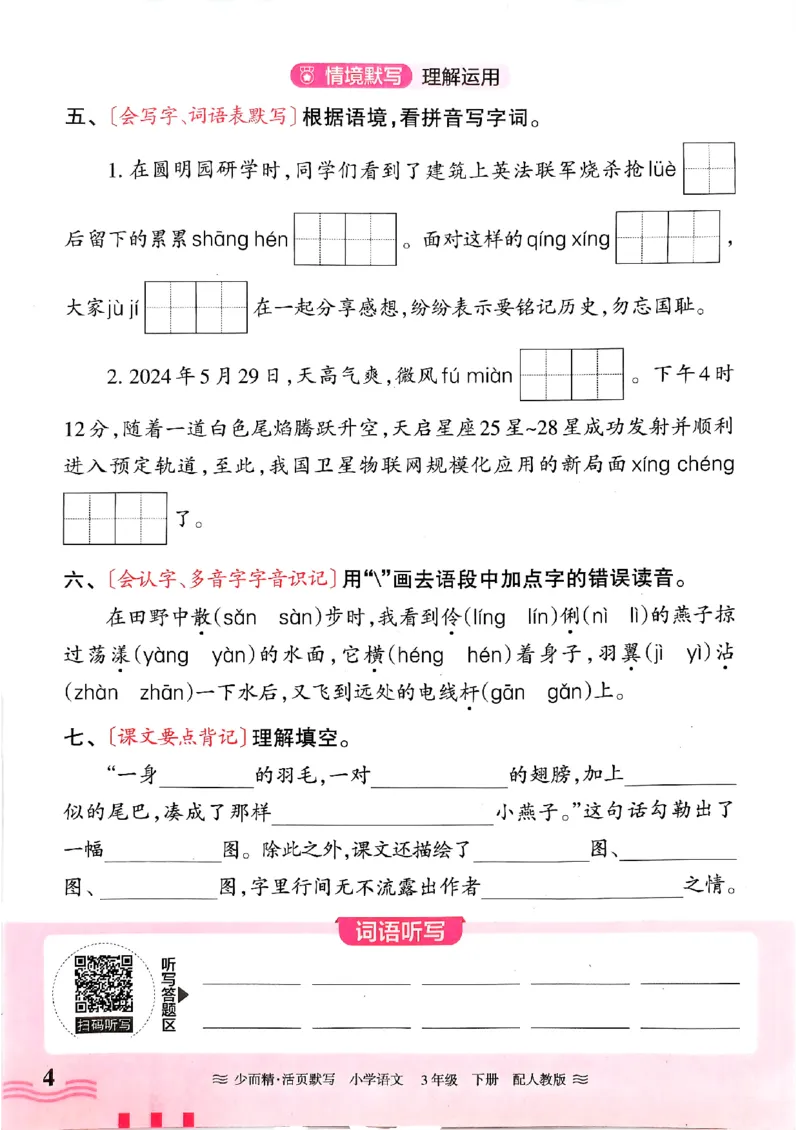 情境默写 理解运用
五、〔会写字、词语表默写〕根据语境,看拼音写字词。
1. 在圆明园研学时,同学们看到了建筑上英法联军烧杀抢lüè
后留下的累累shāng hén 。面对这样的qíng xíng ,
大家jù jí 在一起分享感想,纷纷表示要铭记历史,勿忘国耻。
2. 2024年5月29日,天高气爽,微风fú miàn 。下午4时
12分,随着一道白色尾焰腾跃升空,天启星座25星~28星成功发射并顺利
进入预定轨道,至此,我国卫星物联网规模化应用的新局面xíng chéng
了。
六、〔会认字、多音字字音识记〕用“\”画去语段中加点字的错误读音。
在田野中散(sǎn sàn)步时,我看到伶(líng lín)俐(nì lì)的燕子掠
过荡漾(yàng yàn)的水面,它横(héng hén)着身子,羽翼(jì yì)沾
(zhàn zhān)一下水后,又飞到远处的电线杆(gān gǎn)上。
七、〔课文要点背记〕理解填空。
“一身 的羽毛,一对 的翅膀,加上
似的尾巴,凑成了那样 小燕子。”这句话勾勒出了
一幅 图。除此之外,课文还描绘了 图、
图、 图,字里行间无不流露出作者 之情。
词语听写
扫码听写
听写答题区
4 少而精·活页默写 小学语文 3年级 下册 配人教版